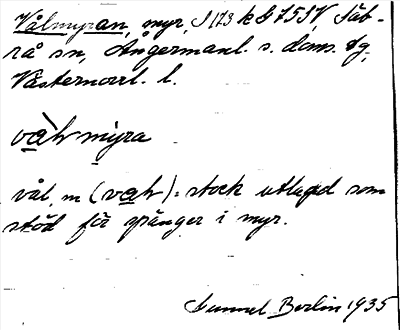 Vålmyran, myr, S 123 k G 7531V Säb-
rå sn, Ångermanl. s. doms. fg,
Västernorrl. l.
våt myra
vål, m (vat) = stock utlagd som
stöd för spänger i myr.
Gunnel Berlin 1935